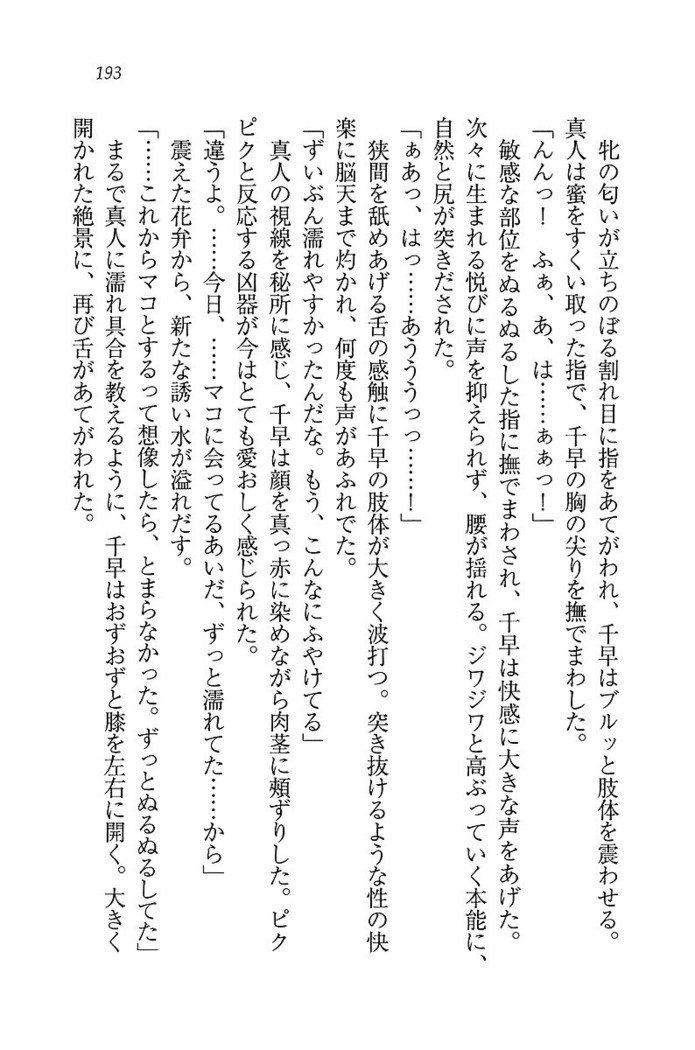 193
牝の匂いが立ちのぼる割れ目に指をあてがわれ、千早はブルッと肢体を震わせる。
真人は蜜をすくい取った指で、千早の胸の尖りを撫でまわした。
「んんっ！　ふぁ、あ、は……ぁぁっ！」
敏感な部位をぬるぬるした指に撫でまわされ、千早は快感に大きな声をあげた。
次々に生まれる悦びに声を抑えられず、腰が揺れる。ジワジワと高ぶっていく本能に、
自然と尻が突きだされた。
「ぁあっ、はっ……あうううっっ……！」
狭間を舐めあげる舌の感触に千早の肢体が大きく波打つ。突き抜けるような性の快
楽に脳天まで灼かれ、何度も声があふれでた。
「ずいぶん濡れやすかったんだな。もう、こんなにふやけてる」
真人の視線を秘所に感じ、千早は顔を真っ赤に染めながら肉茎に頬ずりした。ピク
ピクと反応する凶器が今はとても愛おしく感じられた。
「違うよ。……今日、……マコに会ってるあいだ、ずっと濡れてた……から」
震えた花弁から、新たな誘い水が溢れだす。
「……これからマコとするって想像したら、とまらなかった。ずっとぬるぬるしてた」
まるで真人に濡れ具合を教えるように、千早はおずおずと膝を左右に開く。大きく
開かれた絶景に、再び舌があてがわれた。